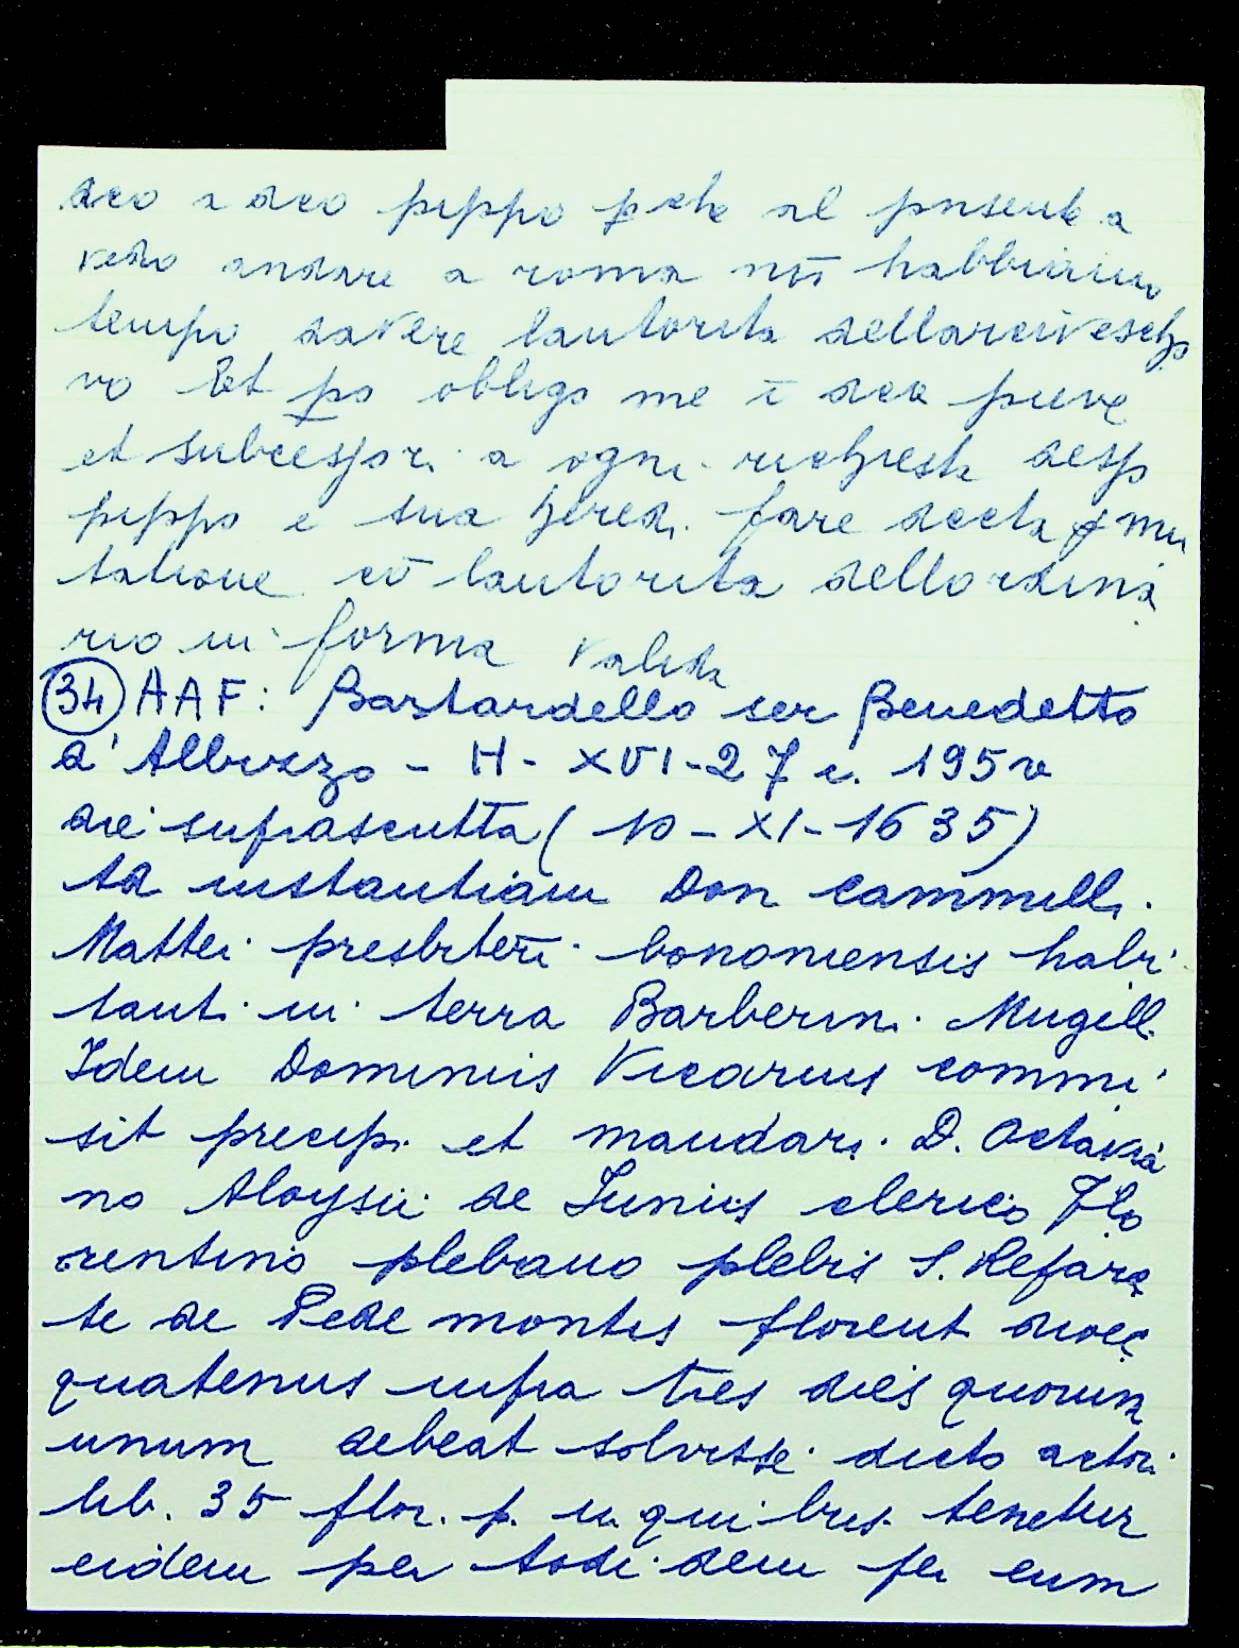 dco a dco pippo pche al pnsente a
vedo andare a roma nō habbiamo
tempo davere lautorita dellarcivescho
vo Et po obligo me ī dca pieve
et subcēssori a ogni richiesta desso
pippo e sua heredi fare decta p mu
tatione cō lautorita dellordina
rio in forma valida
(34) AAF: Bastardello ser Benedetto
d'Albizzo - H - XVI - 27 c. 195v
die suprascritta (10 - XI - 1635)
Ad instantiam Don Cammilli
Mattei presbiteri bononiensis habi
tanti in terra Barberini Mugelli
Idem Dominus Vicarius commi
sit precipi et mandari D. Octavia
no Aloysii de Juniis clerico Flo
rentino plebano plebis S. Repara
te de Pede montis florent dioec
quatenus infra tres dies quorum
unum debeat solvisse dicto actori
lib. 35 flor. p. in quibus tenetur
eidem per todidem per eum